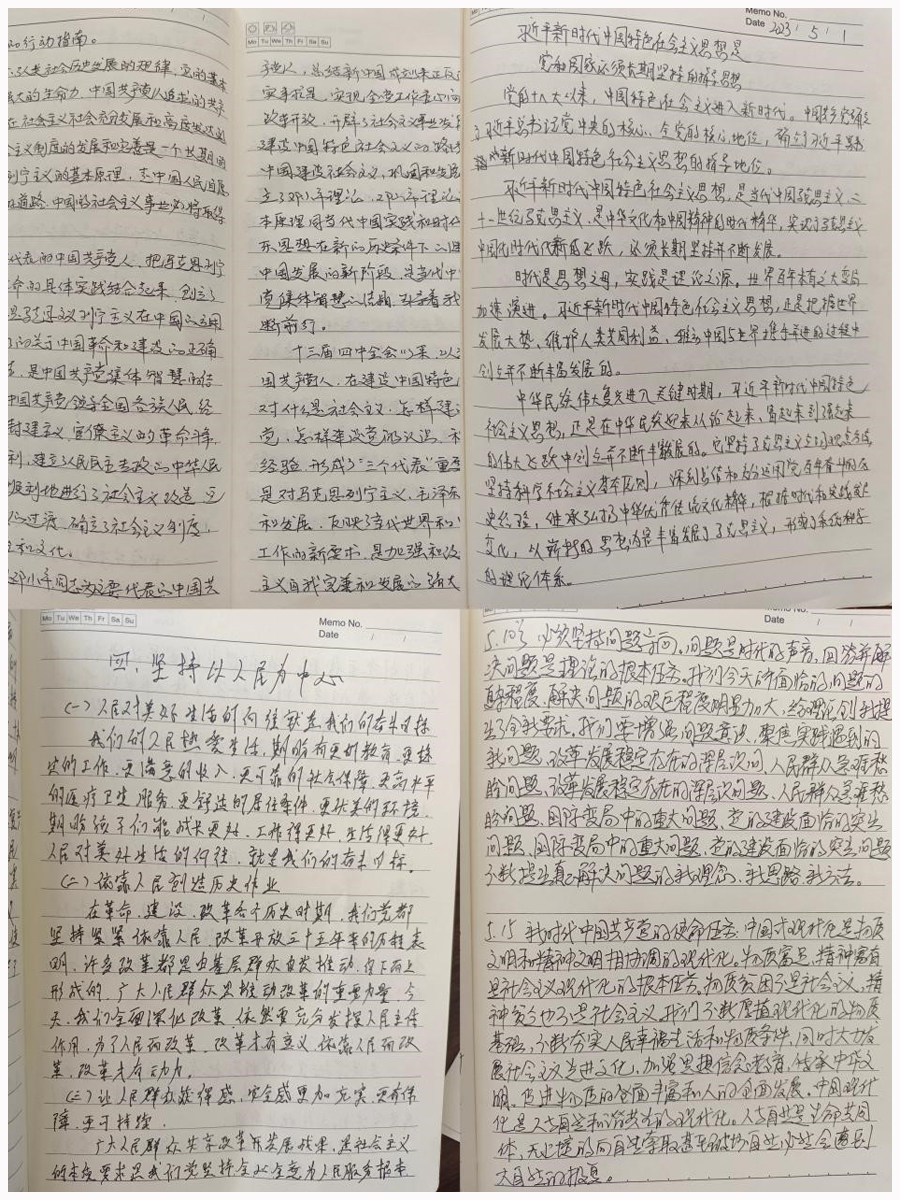 的行动指南。
社会历史发展的规律,党的基本
大的生命力,中国共产党人追求的共产
在社会主义社会充分发展和高度发达的
主义制度的发展和完善是一个长期的
列宁主义的基本原理,走中国人民自愿
道路,中国的社会主义事业必将取得
代表的中国共产党人,把马克思列宁
命的具体实践结合起来,创立了
是马克思主义列宁主义在中国的运用
的关于中国革命和建设的正确
是中国共产党集体智慧的结
中国共产党领导全国各族人民,经
封建主义,官僚主义的革命斗争,
利,建立了人民民主专政的中华人民
顺利地进行了社会主义改造,完
的过渡,确立了社会主义制度,
和文化。
邓小平同志为主要代表的中国共
Mo Tu We Th Fr Sa Su
产党人,总结新中国成立以来正反
实事求是,实现全党工作重心向
改革开放,开辟了社会主义事业发
建设中国特色社会主义的路线
中国建设社会主义,巩固和发展
立了邓小平理论,邓小平理论
本原理同当代中国实践和时代
东思想在新的历史条件下的
中国发展的新阶段,是当代中
党集体智慧的结晶,引导着我
断前行。
十三届四中全会以来,以江
国共产党人,在建设中国特色
对什么是社会主义,怎样建设
党,怎样建设党的认识,积
经验,形成了"三个代表"重要
是对马克思列宁主义,毛泽东
和发展,反映了当代世界和
工作的新要求,是加强和改
主义自我完善和发展的强大
Memo No.
Date 2023 / 5 / 1
习近平新时代中国特色社会主义思想是
党和国家必须长期坚持的指导思想
党的十八大以来,中国特色社会主义进入新时代。中国共产党确立
了习近平总书记党中央的核心、全党的核心地位,确立了习近平
新时代中国特色社会主义思想的指导地位。
习近平新时代中国特色社会主义思想,是当代中国马克思主义、二
十一世纪马克思主义,是中华文化和中国精神的时代精华,实现了马克思主义
中国化时代化新的飞跃,必须长期坚持并不断发展。
时代是思想之母,实践是理论之源。世界百年未有之大变局
加速演进。习近平新时代中国特色社会主义思想,正是把握世界
发展大势、维护人类共同利益、推动中国与世界携手并进的过程中
创立并不断丰富发展的。
中华民族伟大复兴进入关键时期,习近平新时代中国特色
社会主义思想,正是在中华民族迎来从站起来、富起来到强起来
的伟大飞跃中创立并不断丰富发展的。它坚持马克思主义立场观点方法,
坚持科学社会主义基本原则,深刻总结和充分运用党百年奋斗的历
史经验,继承弘扬了中华优秀传统文化精华,根据时代和实践发展
变化,以崭新的思想内容丰富发展了马克思主义,形成了系统科学
的理论体系。
Mo Tu We Th Fr Sa Su
Memo No.
Date / /
四、坚持以人民为中心
(一)人民对美好生活的向往就是我们的奋斗目标
我们的人民热爱生活,期盼有更好教育、更稳
定的工作、更满意的收入、更可靠的社会保障、更高水平
的医疗卫生服务、更舒适的居住条件、更优美的环境,
期盼孩子们能成长更好、工作得更好、生活得更好。
人民对美好生活的向往,就是我们的奋斗目标。
(二)依靠人民创造历史伟业
在革命、建设、改革各个历史时期,我们党都
坚持紧紧依靠人民,改革开放三十五年来的历程表
明,许多改革都是由基层群众自发推动、自下而上
形成的,广大人民群众是推动改革的重要力量,今
天,我们全面深化改革,依然要充分发挥人民主体
作用,为了人民而改革,改革才有意义,依靠人民而改
革,改革才有动力。
(三)让人民群众获得感,安全感更加充实,更有保
障,更可持续
广大人民群众共享改革开放发展成果,是社会主义
的本质要求是我们党坚持全心全意为人民服务根本
Memo No.
Date / /
5.10号 必须坚持问题导向。问题是时代的声音,回答并解
决问题是理论的根本任务。我们今天所面临的问题的
程度、解决问题的艰巨程度明显加大,给理论创新提
出了全新要求。我们要增强问题意识,聚焦实践遇到的
新问题、改革发展稳定存在的深层次问、人民群众急难愁
盼问题、改革发展稳定存在的深层次问题、人民群众急难愁
盼问题、国际变局中的重大问题、党的建设面临的突出
问题、国际变局中的重大问题、党的建设面临的突出问题
不断提出真正解决问题的新理念、新思路、新办法。
5.15 新时代中国共产党的使命任务:中国式现代化是物质
文明和精神文明相协调的现代化。物质富足、精神富有
是社会主义现代化的根本任务。物质贫困不是社会主义,精
神贫乏也不是社会主义。我们不断厚植现代化的物质
基础,不断夯实人民幸福生活和物质条件,同时大力发
展社会主义先进文化,加强思想信念教育,传承中华文
明,促进物质的全面丰富和人的全面发展。中国现代
化是人与自然和谐共生的现代化。人与自然是生命共同
体,无止境的向自然索取甚至破坏自然必然会遭到
大自然的报复。